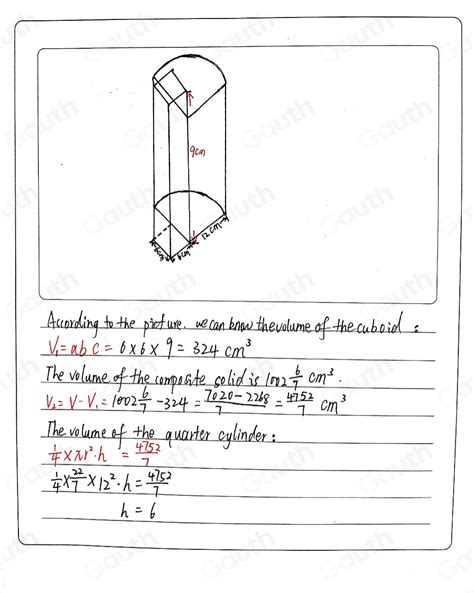 9cm
6cm
6cm
12cm
According to the picture. we can know the volume of the cuboid :
V₁ = abc = 6 × 6 × 9 = 324 cm³
The volume of the composite solid is 1002 6/7 cm³.
V₂ = V - V₁ = 1002 6/7 - 324 = (7020 - 2268)/7 = 4752/7 cm³
The volume of the quarter cylinder:
1/4 × πr² · h = 4752/7
1/4 × 22/7 × 12² · h = 4752/7
h = 6
Gauth